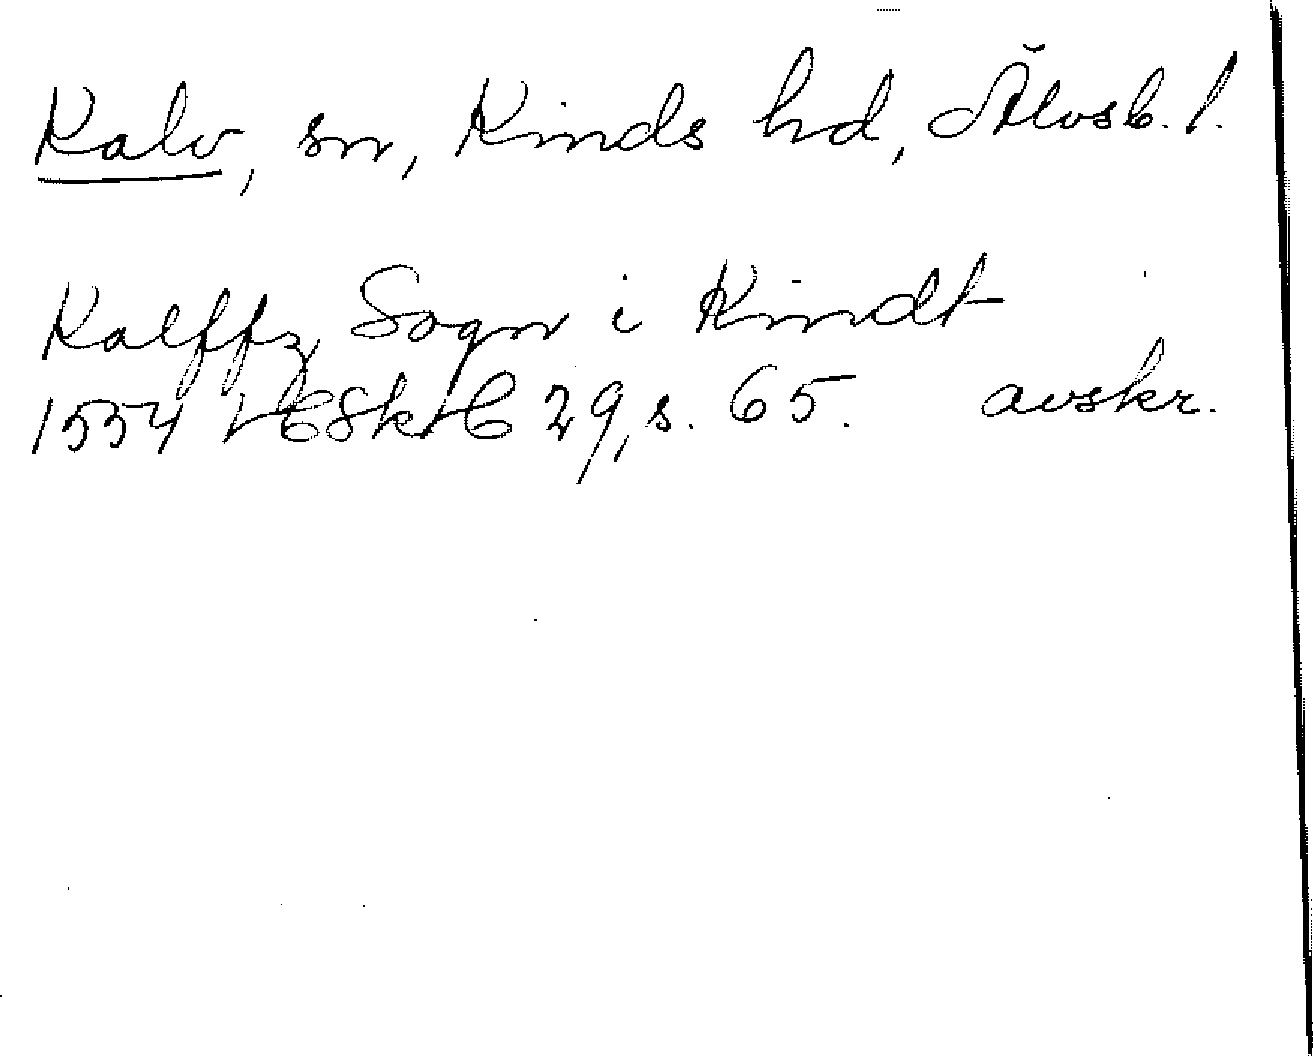 Kalv, sn, Kinds hd, Älvsb. l.
Kalffz Sogn i Kindt
1554 29, s. 65. avskr.